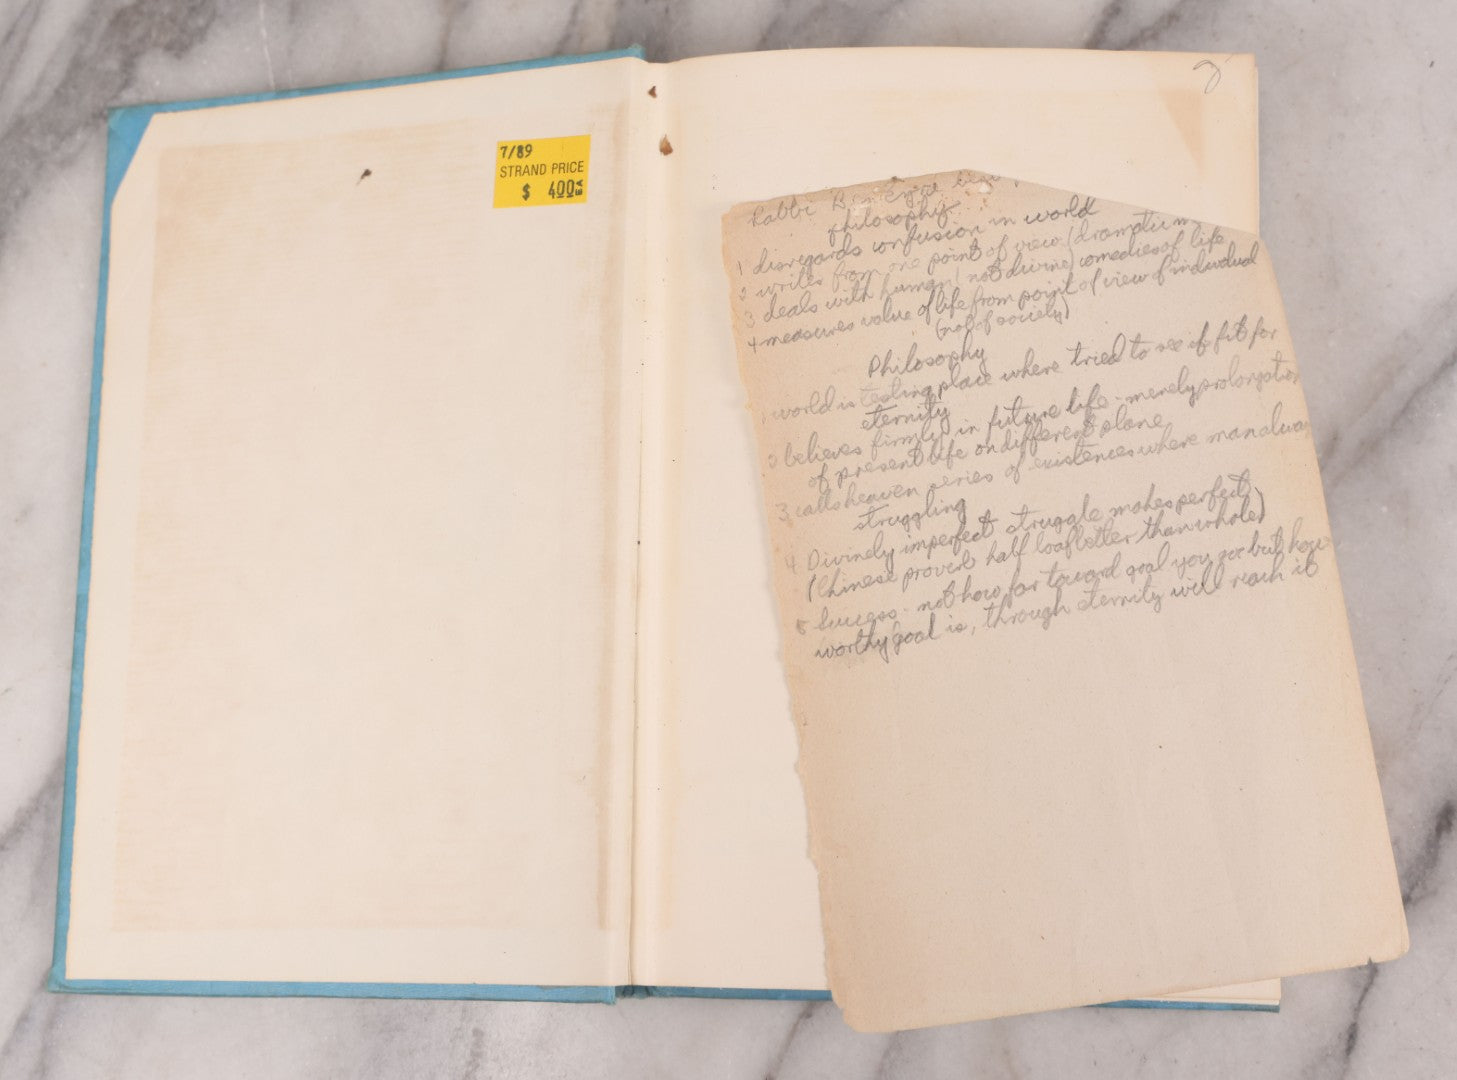 7/89
STRAND PRICE
$ 4.00 EA
Rabbi Ben Ezra
philosophy
1 disregards confusion in world
2 writes from one point of view (dramatic
3 deals with human (not divine) comedies of life
4 measures value of life from point of view of individual
(not of society)
Philosophy
world is testing place where tried to see if fit for
eternity
2 believes firmly in future life - merely prolongation
of present life on different plane
3 calls heaven series of existences where man always
struggling
4 Divinely imperfect struggle makes perfect
(Chinese proverb half loaf better than whole)
5 Success - not how far toward goal you get but how
worthy goal is, through eternity will reach it